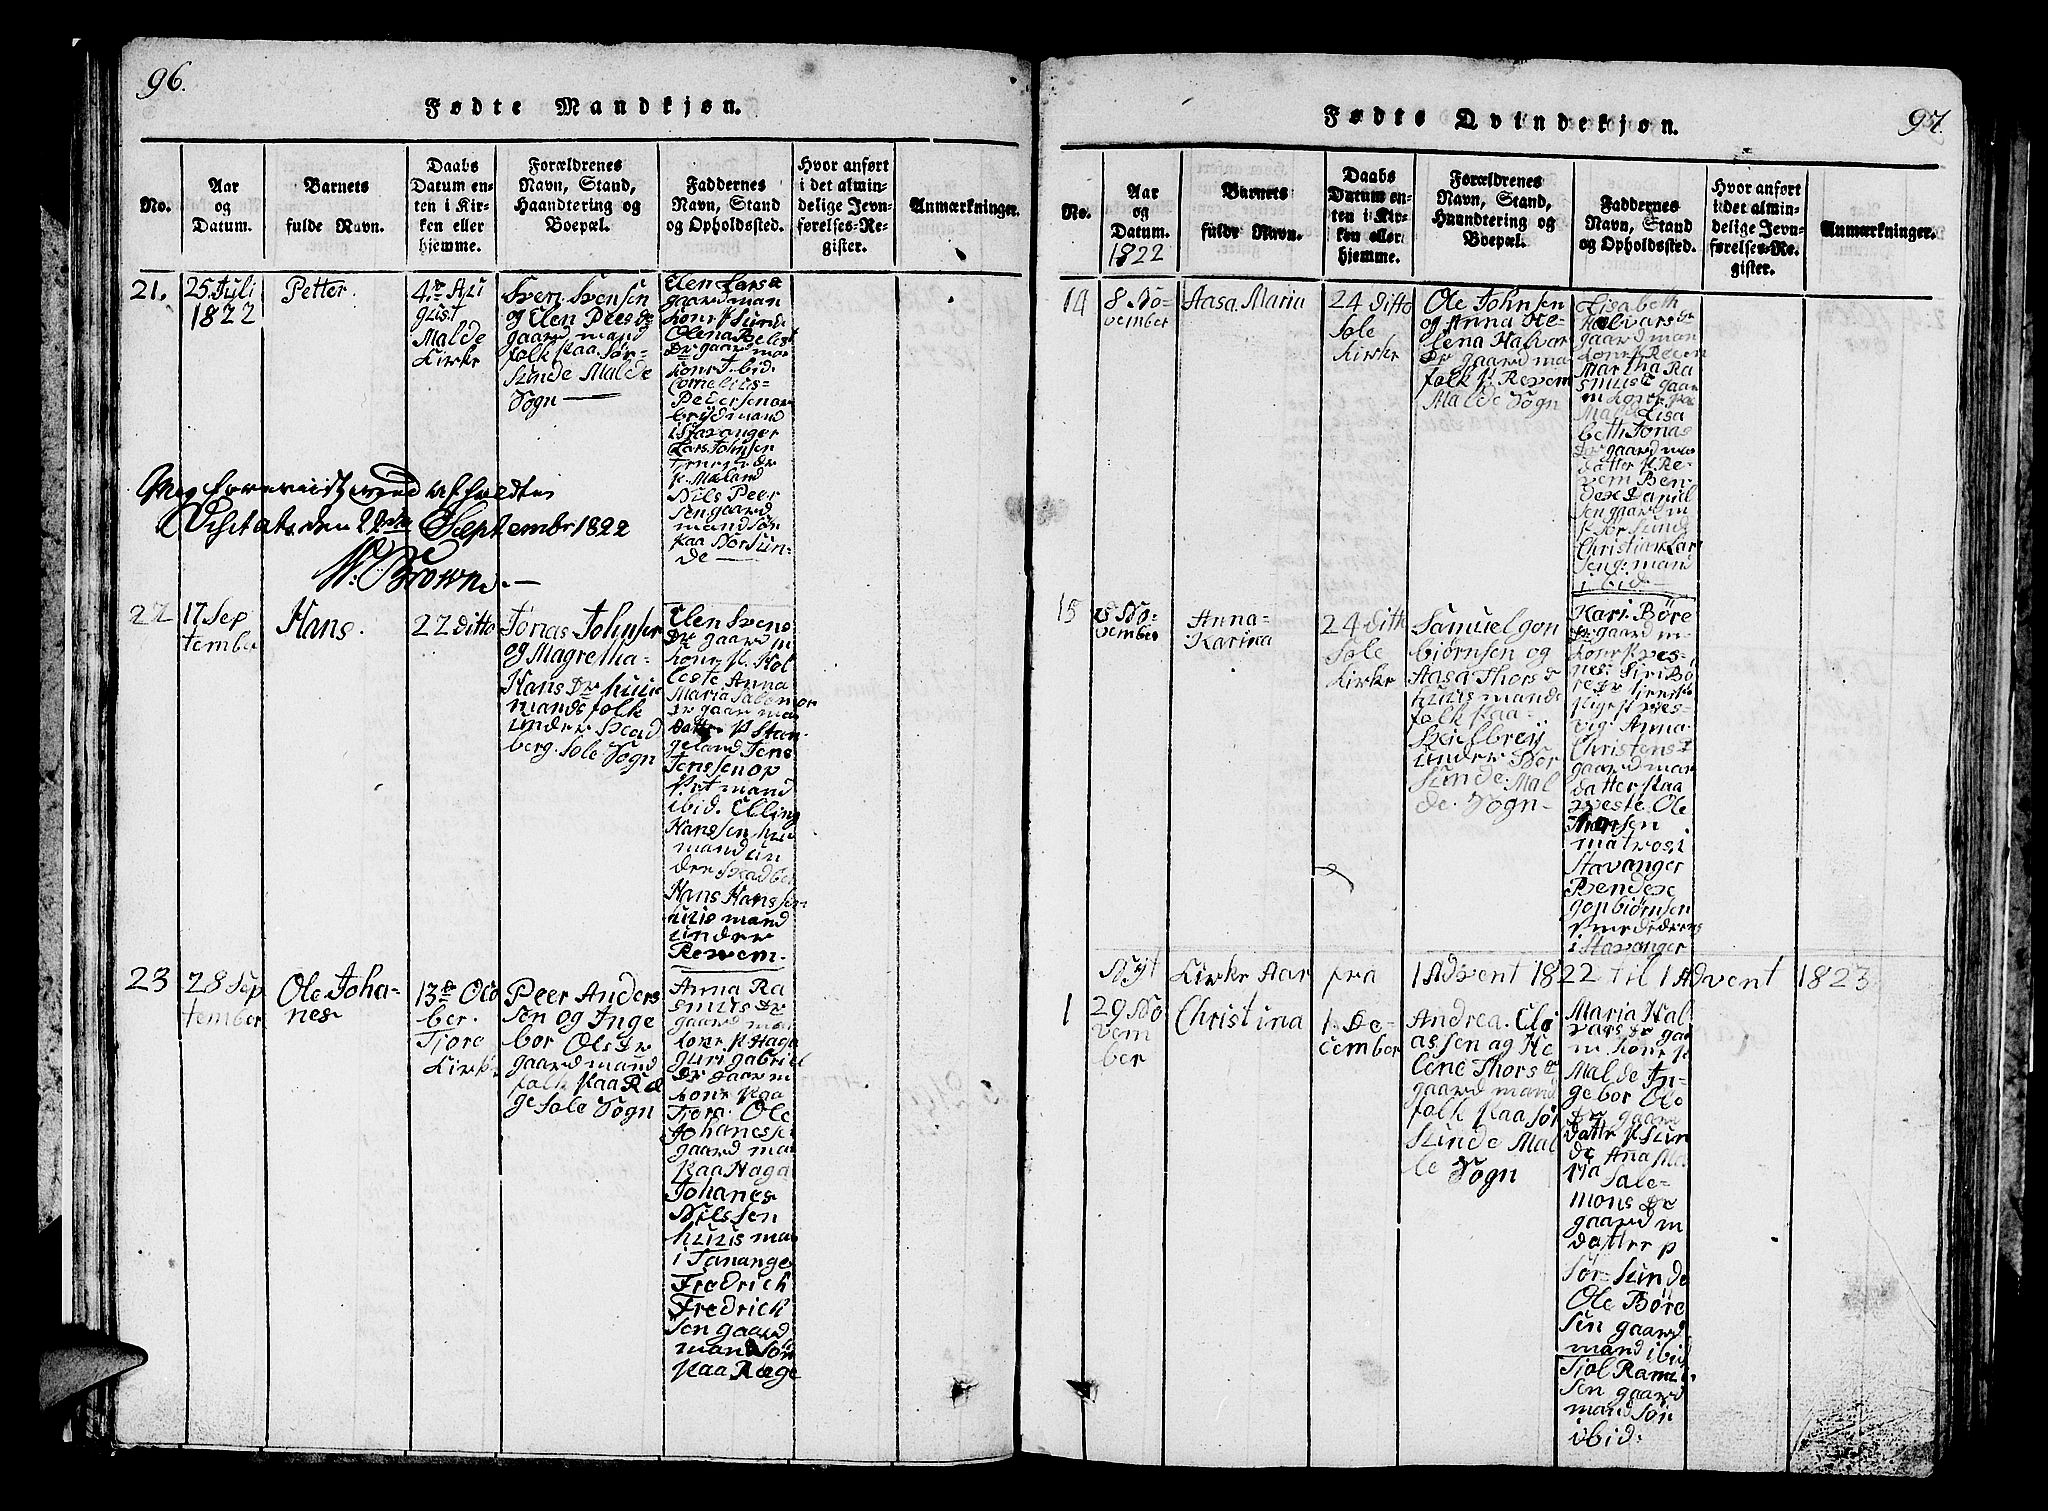 96.
Fødte Mandkjøn.
No.
Aar
og
Datum.
Barnets
fulde Navn.
Daabs
Datum en-
ten i Kir-
ken eller
hjemme.
Forældrenes
Navn, Stand,
Haandtering og
Boepæl.
Faddernes
Navn, Stand
og Opholdssted.
Hvor anført
i det almin-
delige Jevn-
førelses-Re-
gister.
Anmærkninger.
21.
25 Juli
1822
Petter
4de Au
gust
Malde
Kirke
Sven Svensen
og Elen Peers dr
gaard mand
folk paa Sør-
Sunde Malde
Sogn
Elen Lars dr
gaard man
kone p Sunde
Olena
Dr gaard ma
kone ibid.
Cornelius
Pedersen
mand
i Stavanger
Lars Johnsen
p. Meland
Nils Peer
sen gaard
mand søn
paa Nor Sun-
de
Visitats den 22de September 1822
W. Brown.
22
17 Sep
tember
Hans.
22 ditto
Jonas Johnsen
og Magretha
Hans Dr huus
mands folk
under Skad
berg. Sole Sogn
Elen Svens
Dr gaard m
kone p. Kol
Anna
Maria Salomon
Dr gaar man
datter p Stan-
geland Jens
Jenssen op
sit mand
ibid. Elling
Hanssen huu
mand un
der Skadber
Hans Hanssen
huus mand
under
Revem.
23
28 Sep
tember
Ole Joha-
nes
13de Octo
ber.
Tjora
Kirke
Peer Anders
sen og Inge
bor Ols Dr
gaard mand
folk paa Ræ
ge Sole Sogn
Anna Ra
smus Dr
gaard man
kone p Haga
Guri gabriel
Dr gaar m
kone paa
Tjora. Ole
Johanesse
gaard man
paa Haga
Johanes
Nilssen
huus man
i Tananger
Fredrich
Fredrick
sen gaard
mand søn
paa Ræge
97.
Fødte Qvindekjøn.
No.
Aar
og
Datum.
1822
Barnets
fulde Navn.
Daabs
Datum en-
ten i Kir-
ken eller
hjemme.
Forældrenes
Navn, Stand,
Haandtering og
Boepæl.
Faddernes
Navn, Stand
og Opholdssted.
Hvor anført
i det almin-
delige Jevn-
førelses-Re-
gister.
Anmærkninger.
14
8 No-
vember
Aasa Maria
24 ditto
Sole
Kirke
Ole Johnsen
og Anna He-
lena Halvor
Dr gaard ma
folk p. Revem
Malde Sogn
Lisabeth
Halvars Dr
gaard man
kone p. Revem
Martha Ra
smus D gaar
m kone paa
Malde Lisa
beth Jonas
Dr gaard ma
datter p. Re-
vem Ben-
dex Daniel
sen gaard m
p Sør Sunde
Christian Lar
sen g. mand
ibid
15
8 No-
vember
Anna-
Karina
24 ditto
Sole
Kirke
Samuel gon
biørnsen og
Aasa Thors D
huus mands
folk paa
under Nor
Sunde. Mal
de. Sogn-
Kari. Børe
Dr gaard m
kone p væs-
nes Siri Bø
re Dr tjeneste
pige p væs-
vig Anna
Christens D
gaard man
datter paa
Ole
Thorsen
matros i
Stavanger
Bendexe
gonbiørnsen
i Stavanger
Nyt Kirke Aar fra 1 Advent 1822 til 1 Advent 1823
1
29 No
vem
ber
Christina
1. De-
cember
Andrea. Cla
assen og He
lene Thors D
gaard mand
folk paa Sør
Sunde Mal
de Sogn
Maria Hal
vars Dr gaa
m kone p
Malde In-
gebor Ole
Dr gaard
datter p Sun
de Ana Ma
ria Sale-
mons Dr
gaard m
datter p
Sør-Sunde
Ole Børe
sen gaard
mand ibid
gaard
mand søn
ibid.